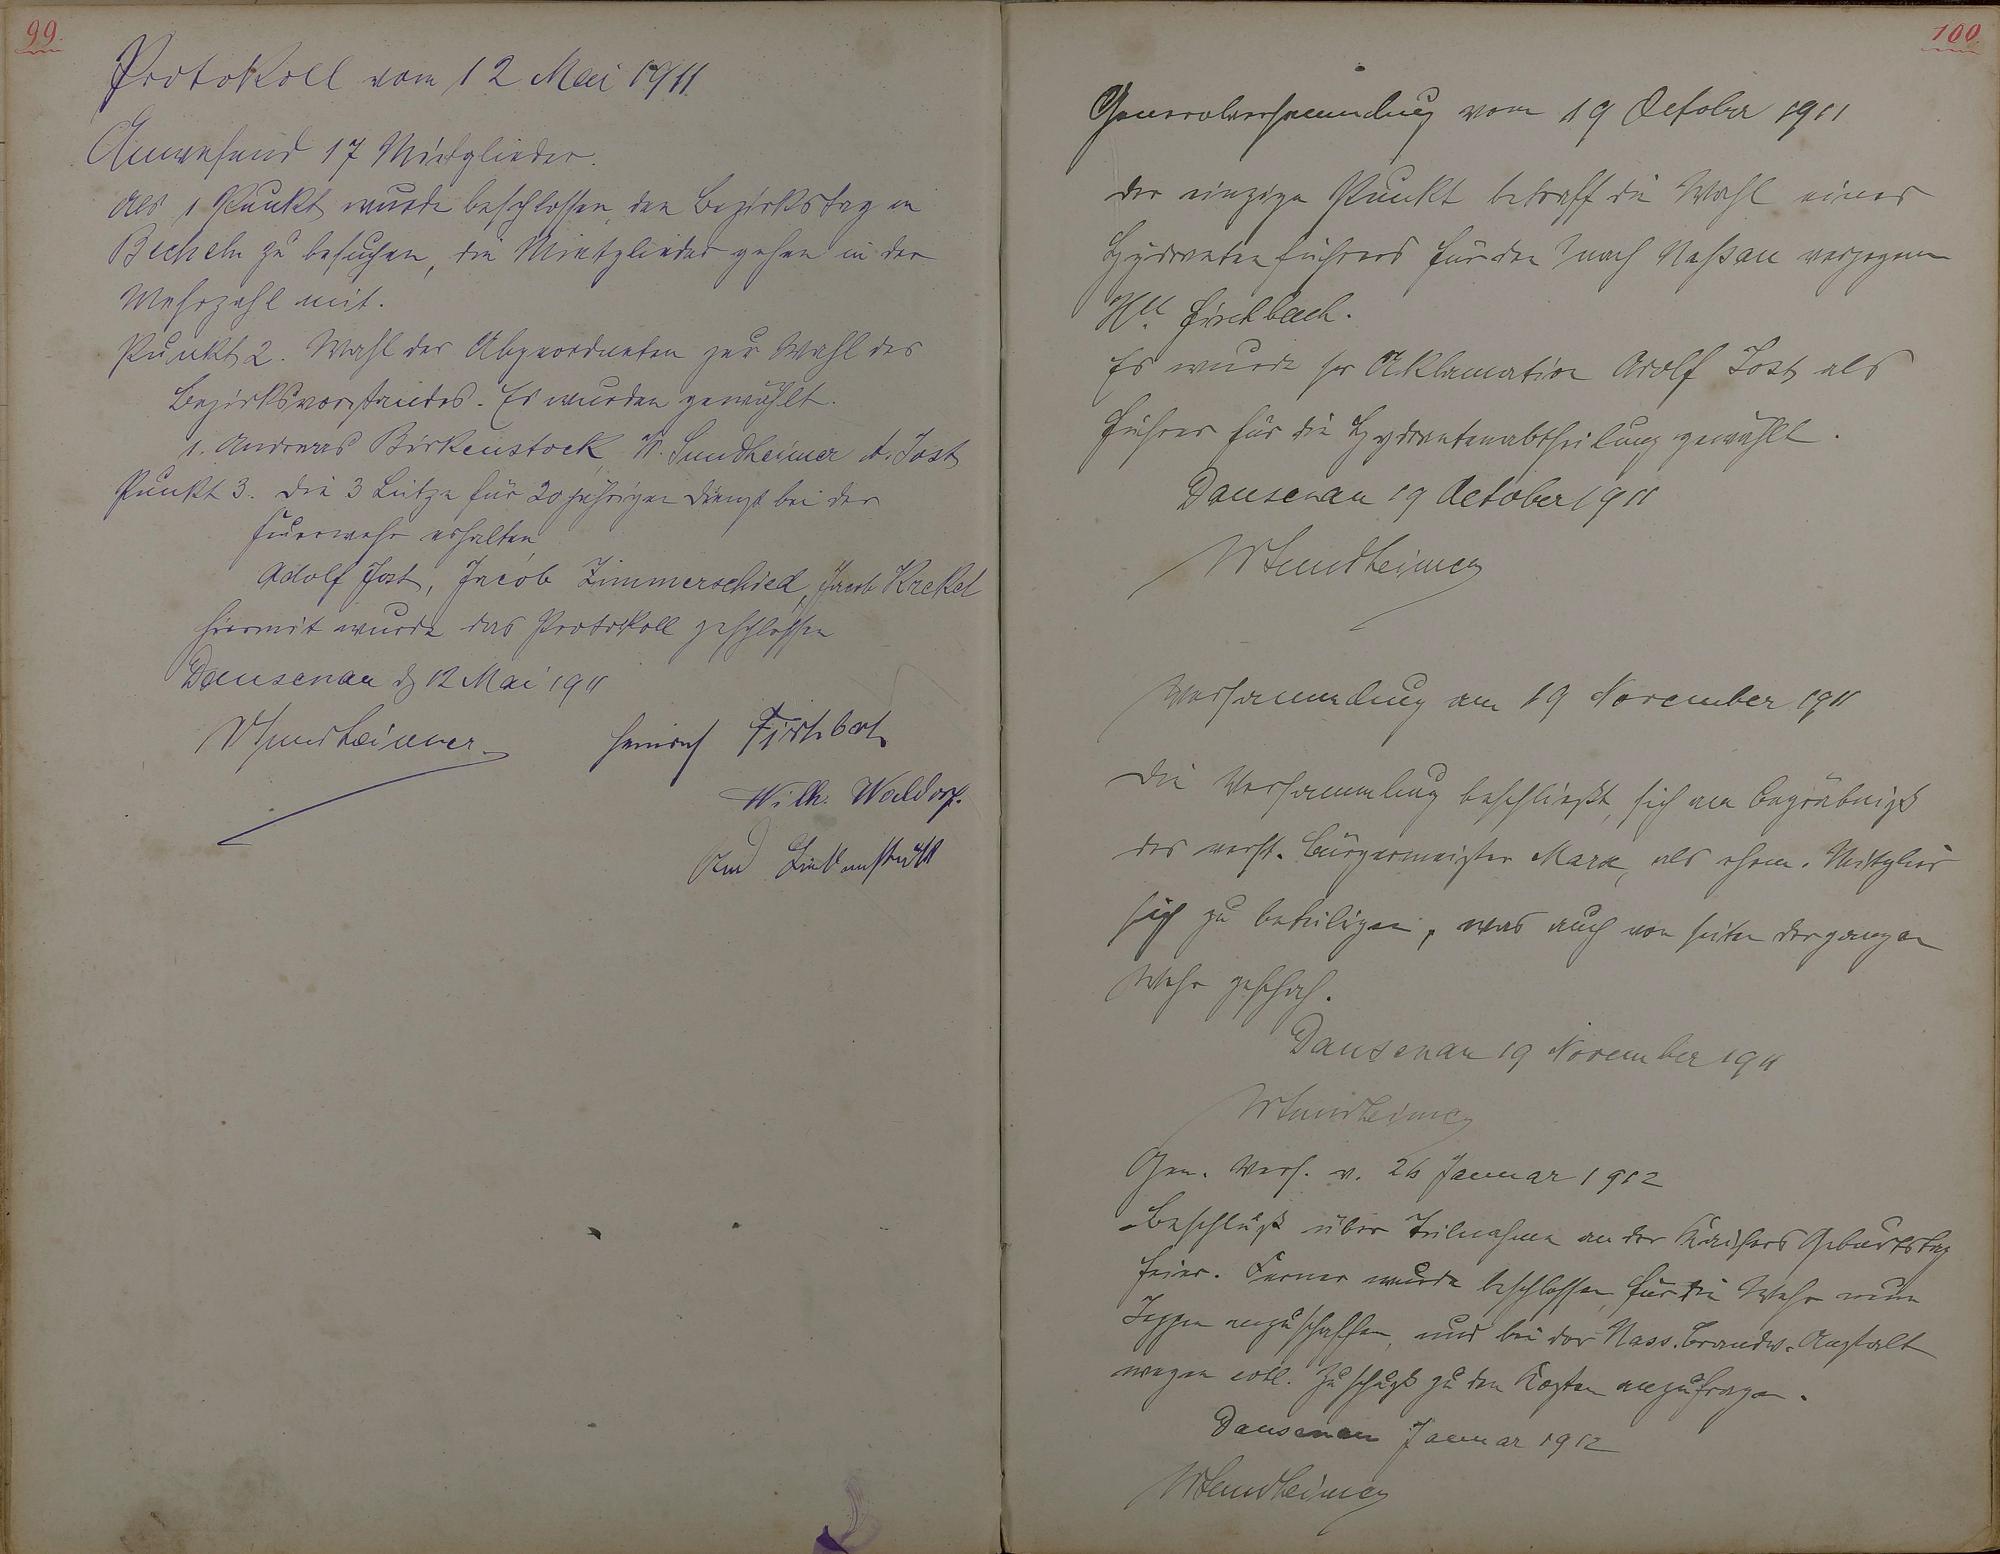 99.
Protokoll vom 12 Mai 1911
Anwesend 17 Mietglieder.
Als 1 Punkt wurde beschlossen, den Bezirkstag in
Becheln zu besuchen, die Mietglieder gehen in der
Mehrzahl mit.
Punkt 2. Wahl der Abgeordneten zur Wahl des
Bezirksvorstandes. Es wurden gewählt.
1. Andreas Birkenstock, W. Sundheimer A. Jost
Punkt 3. Die 3 Litze für 20 jährigen Dienst bei der
Feuerwehr erhalten
Adolf Jost, Jacob Zimmerschied, Jacob Krekel
hiermit wurde das Protokoll geschlossen
Dausenau d 12 Mai 1911
W Sundheimer
Heinrich Fischbach
Wilh. Waldorf.
And Birkenstock
100
Generalversammlung vom 19 October 1911
Der einzige Punkt betraff die Wahl eines
Hydrantenführers für den nach Naßau verzogenen
Hch. Fischbach.
Es wurde per Aklamation Adolf Jost als
Führer für die Hydrantenabtheilung gewählt.
Dausenau 19 October 1911
W Sundheimer
Versammlung am 19 November 1911
Die Versammlung beschließt, sich am Begräbniß
des verst. Bürgermeister Marx, als ehem. Mitglied
sich zu beteiligen, was auch von seiten der ganzen
Wehr geschah.
Dausenau 19 November 1911
W Sundheimer
Gen. Vers. v. 26 Januar 1912
Beschluß über Teilnahme an der Kaisers Geburtstag
feier. Ferner wurde beschlossen, für die Wehr neue
Joppen anzuschaffen, und bei der Nass. Brandv. Anstalt
wegen evtl. Zuschuß zu den Kosten anzufragen.
Dausenau Januar 1912
W Sundheimer